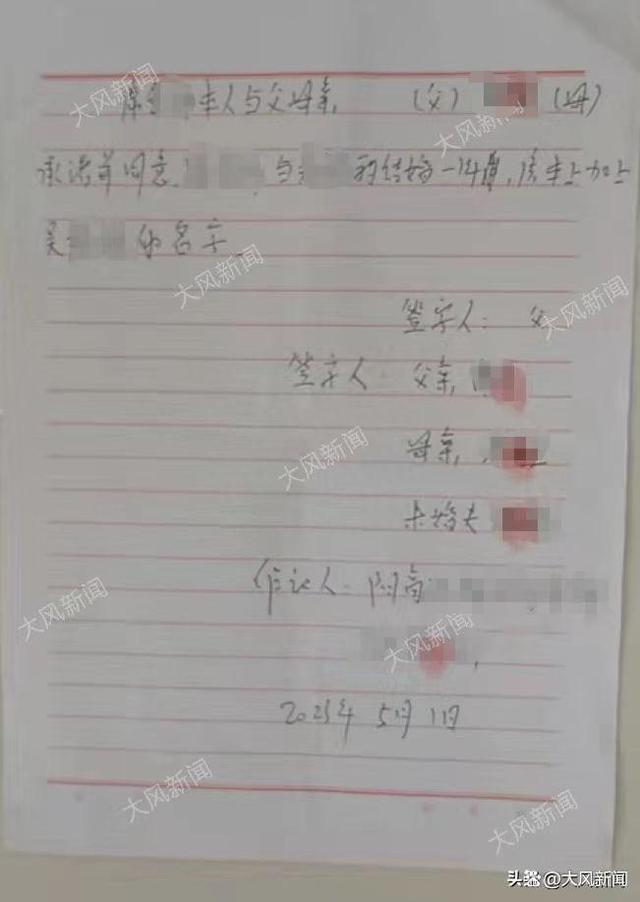 本人与父母亲, (父) (母)
承诺并同意 与 的结婚一周年,房本上加上
吴 的名字
签字人: 父
签字人 父亲,
母亲,
未婚夫
作证人:
2025年 5月1日
大风新闻
大风新闻
大风新闻
大风新闻
大风新闻
大风新闻
大风新闻
大风新闻
大风新闻
头条@大风新闻